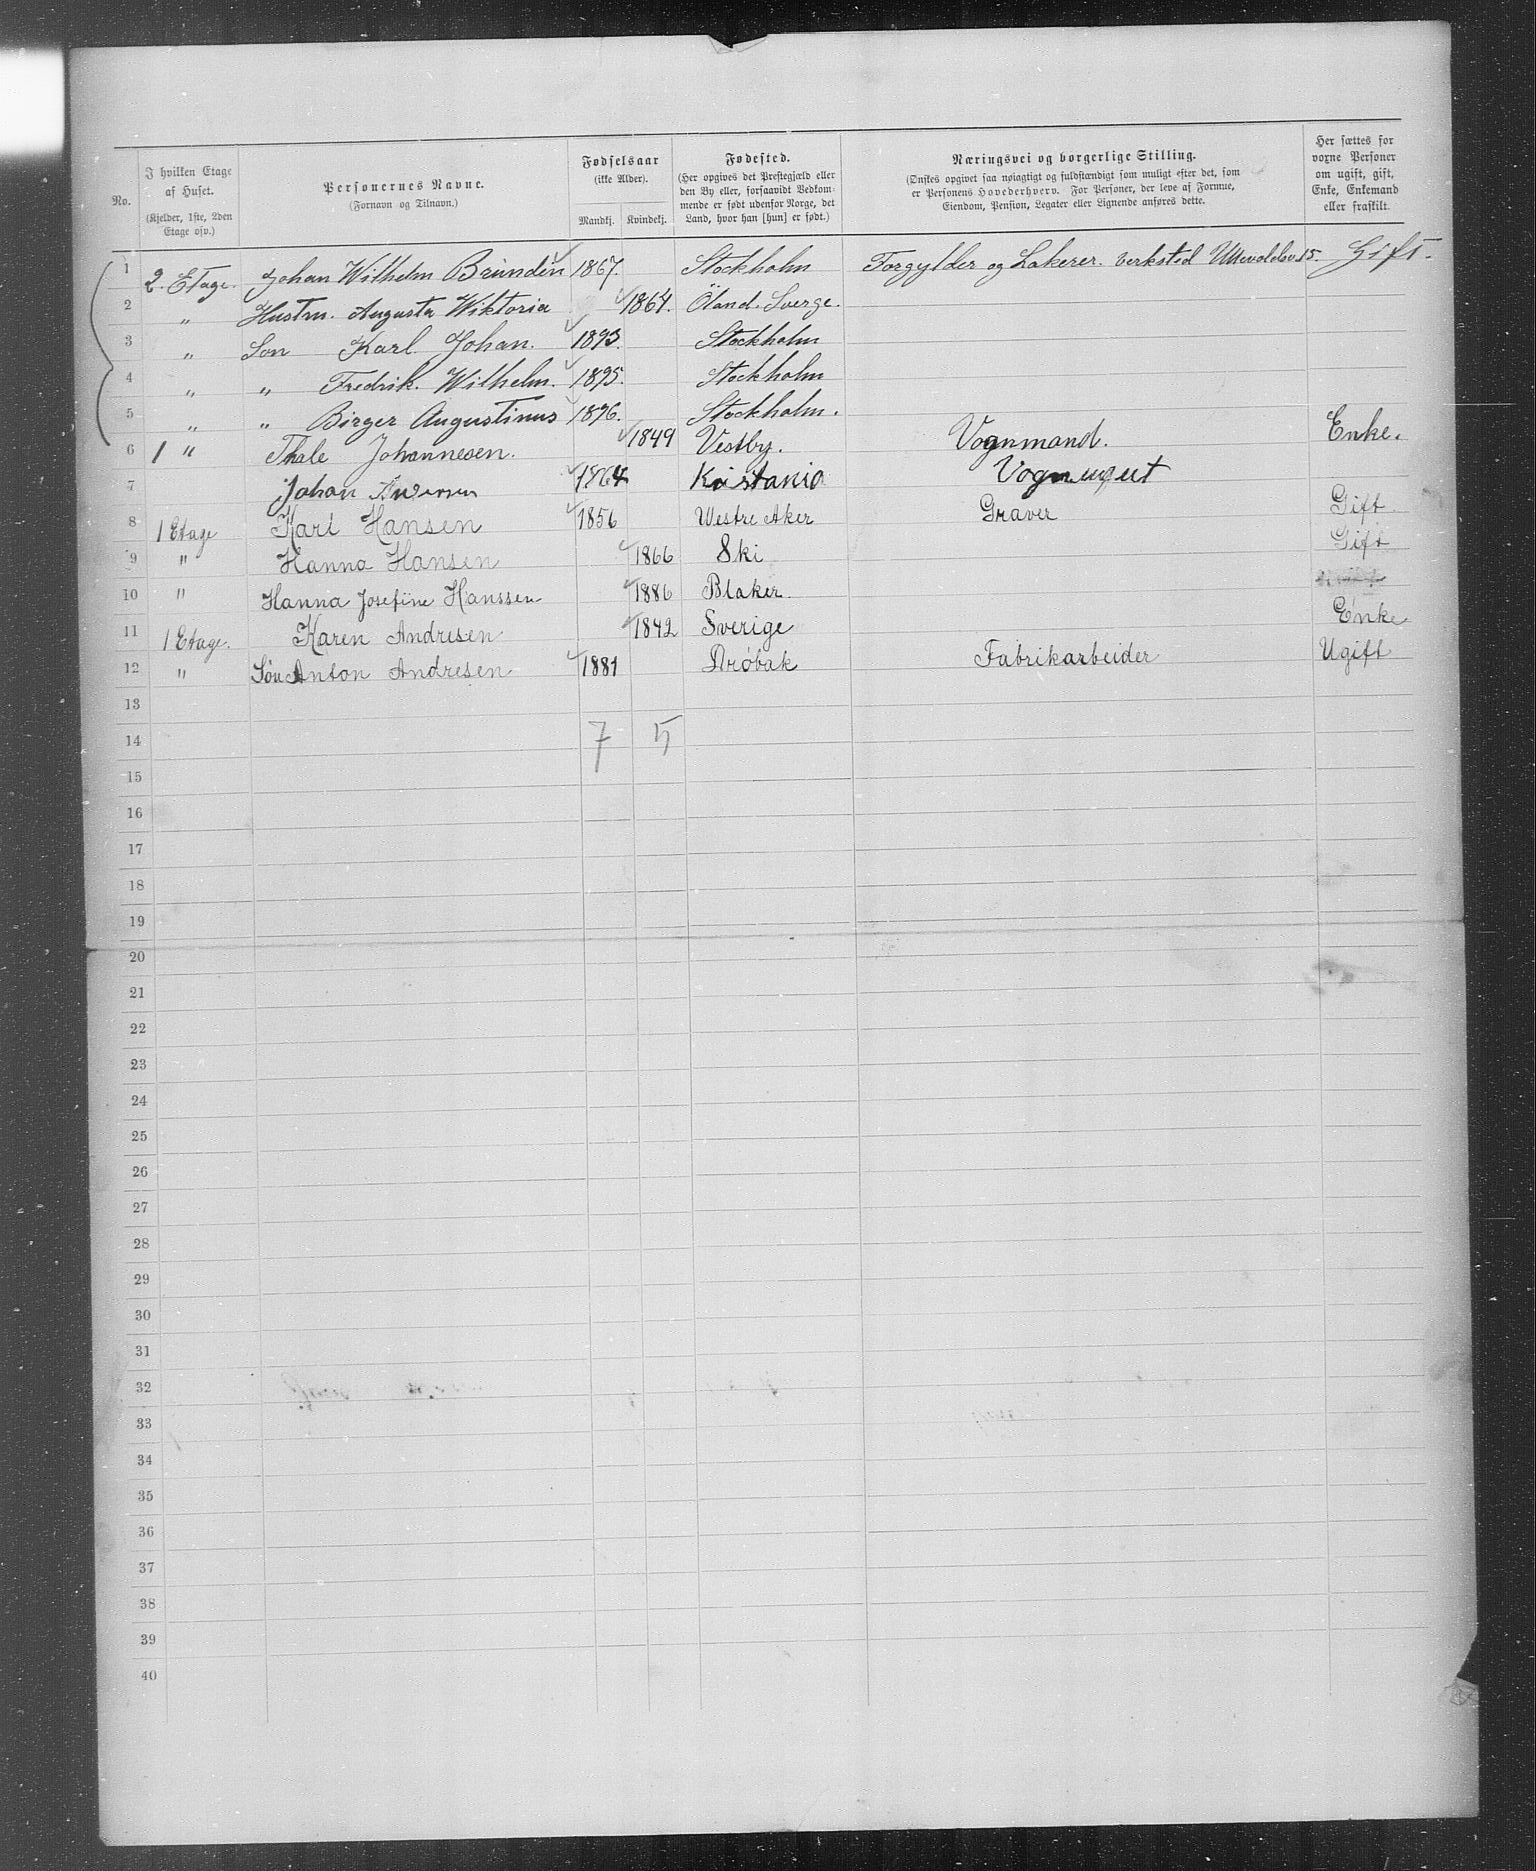 No. | I hvilken Etage af Huset. (Kjelder, 1ste, 2den Etage osv.) | Personernes Navne. (Fornavn og Tilnavn.) | Fødselsaar (ikke Alder). Mandkj. | Kvindekj. | Fødested. (Her opgives det Præstegjæld eller den By eller, forsaavidt Vedkommende er født udenfor Norge, det Land, hvor han [hun] er født.) | Næringsvei og borgerlige Stilling. (Ønskes opgivet saa nøiagtigt og fuldstændigt som muligt efter det, som er Personens Hovederhverv. For Personer, der leve af Formue, Eiendom, Pension, Legater eller Lignende anføres dette. | Her sættes for voxne Personer om ugift, gift, Enke, Enkemand eller fraskilt.
1 | 2. Etage. | Johan Wilhelm Brundin | 1867. | | Stockholm | Forgylder og Lakerer. Verksted Ullevoldsv 15. | Gift.
2 | " | Hustru. Augusta Wiktoria | | 1864. | Öland. Sverge. | |
3 | " | Son Karl Johan. | 1893. | | Stockholm | |
4 | " | " Fredrik. Wilhelm. | 1895. | | Stockholm | |
5 | " | " Birger Augustinus | 1896. | | Stockholm. | |
6 | 1 " | Thale Johannesen. | | 1849 | Vestby. | Vognmand. | Enke.
7 | | Johan | 1864 | | Kristania | |
8 | 1 Etage | Karl Hansen | 1856 | | Westre Aker | Graver | Gift
9 | " | Hanna Hansen | | 1866 | Ski | | Gift
10 | " | Hanna Josefine Hanssen | | 1886 | Blaker. | |
11 | 1 Etage. | Karen Andresen | | 1842 | Sverige | | Enke
12 | " | Søn Anton Andresen | 1881 | | Drøbak | Fabrikarbeider | Ugift
13
14 | | | 7 | 5
15
16
17
18
19
20
21
22
23
24
25
26
27
28
29
30
31
32
33
34
35
36
37
38
39
40